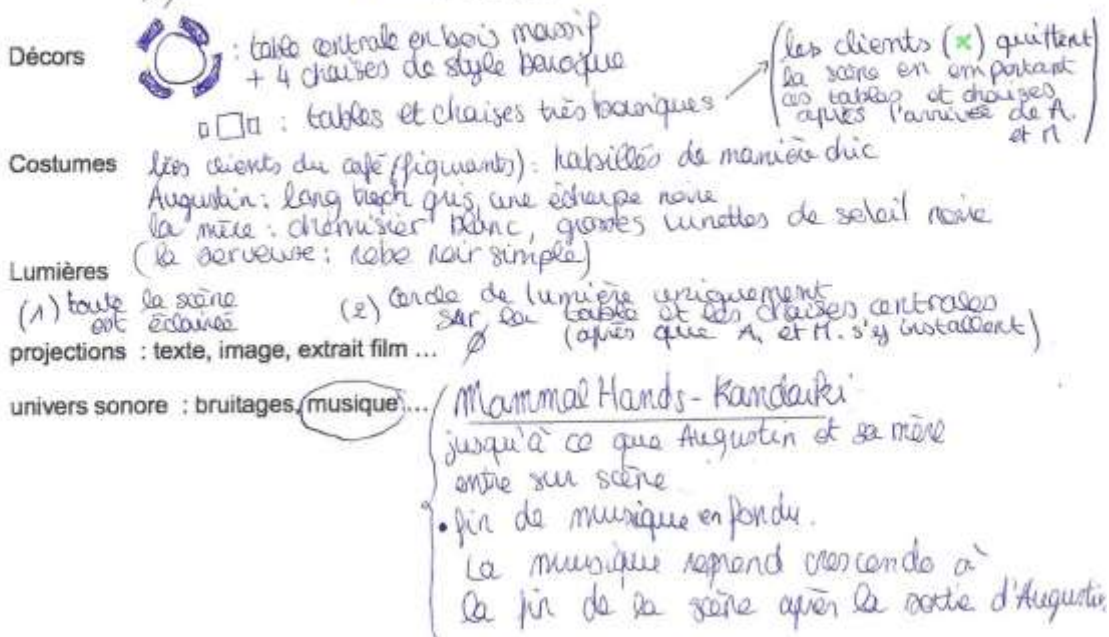 Décors
: table centrale en bois massif
+ 4 chaises de style baroque
: tables et chaises très basiques
(les clients (x) quittent
la scène en emportant
ces tables et chaises
après l'arrivée de A.
et M)
Costumes
les clients du café (figurants): habillés de manière chic
Augustin: long trech gris, une écharpe noire
la mère: chemisier blanc, grosses lunettes de soleil noire
(la serveuse: robe noir simple)
Lumières
(1) toute la scène
est éclairée
(2) Cercle de lumière uniquement
sur la table et les chaises centrales
(après que A. et M. s'y installent)
projections : texte, image, extrait film ... ∅
univers sonore : bruitages, musique ...
Mammal Hands - Kandaiki
jusqu'à ce que Augustin et sa mère
entre sur scène
• fin de musique en fondu.
La musique reprend crescendo à
la fin de la scène après la sortie d'Augustin.